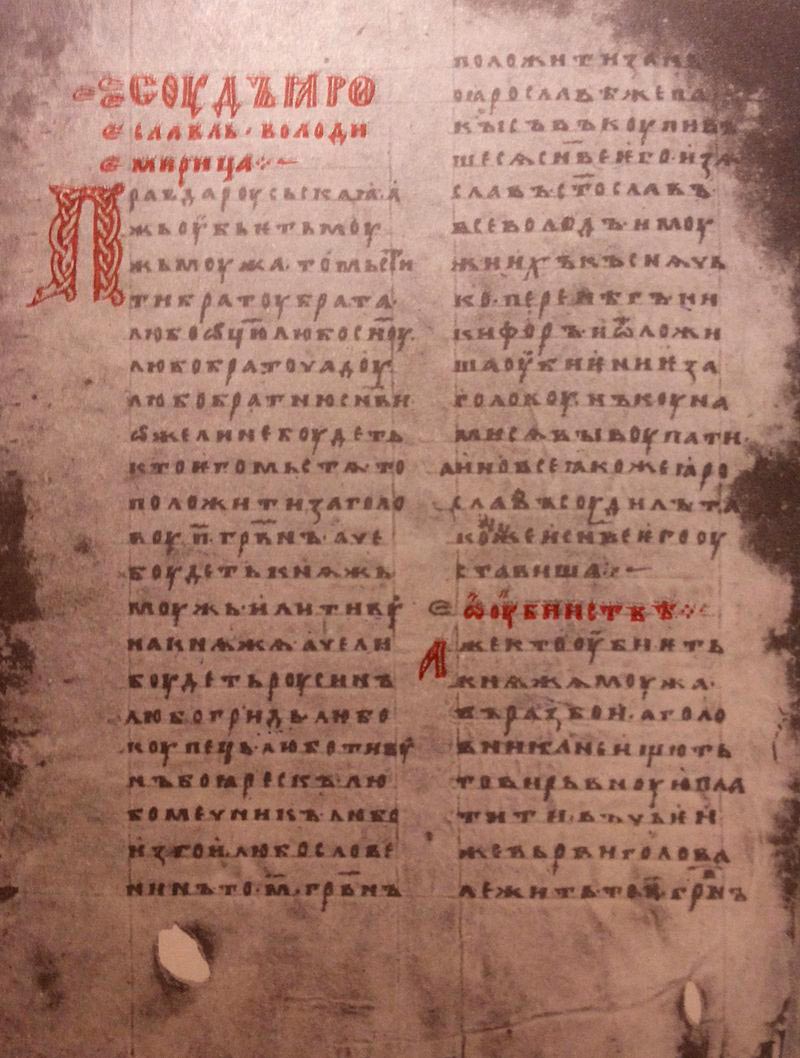 СОУДЪ ꙖРО
СЛАВЛЬ · ВОЛОДИ
МИРИЦА
ПРАВДА РОУСЬСКАꙖ · А
ЖЬ ОУБЬѤТЬ МОУ
ЖЬ МОУЖА · ТО МЬСТИ
ТИ БРАТОУ БРАТА ·
ЛЮБО ѾЦЮ ЛЮБО СН҃ОУ ·
ЛЮБО БРАТОУЧАДОУ ·
ЛЮБО БРАТНЮ СН҃ВИ
ѾЖЕ ЛИ НЕ БОУДЕТЬ
КТО ѤГО МЬСТѦ ТО
ПОЛОЖИТИ ЗА ГОЛО
ВОУ · П҃ · ГРВ҃НЪ · АЧЕ
БОУДЕТЬ КНѦЖЬ
МОУЖЬ · ИЛИ ТИВОУ
НА КНѦЖѦ · АЧЕ ЛИ
БОУДЕТЬ РОУСИНЪ
ЛЮБО ГРИДЬ · ЛЮБО
КОУПЕЦЬ · ЛЮБО ТИВОУ
НЪ БОꙖРЕСКЪ · ЛЮ
БО МЕЧНИКЪ · ЛЮБО
ИЗГОИ · ЛЮБО СЛОВЕ
НИНЪ ТО · М҃ · ГРВ҃НЪ
ПОЛОЖИТИ ЗА НЬ
ПО ꙖРОСЛАВѢ ЖЕ ПА
КЫ СЪВЪКОУПИВЪ
ШЕСѦ СН҃ВЕ ѤГО · ИЗѦ
СЛАВЪ СТ҃ОСЛАВЪ ·
ВСЕВОЛОДЪ · И МОУ
ЖИ ИХЪ КЪСНѦЧЬ
КО · ПЕРЕНѢГЪ НИ
КИФОРЪ · И ѾЛОЖИ
ША ОУБИѤНИѤ ЗА
ГОЛОВОУ · НЪ КОУНА
МИ СѦ ВЫКОУПАТИ ·
А ИНО ВСЕ ꙖКОЖЕ ꙖРО
СЛАВЪ СОУДИЛЪ ТА
КОЖЕ И СН҃ВЕ ѤГО ОУ
СТАВИША
Ѡ ОУБИИСТВѢ
АЖЕ КТО ОУБИѤТЬ
КНѦЖѦ МОУЖА ·
ВЪ РАЗБОИ · А ГОЛО
ВНИКА НЕ ИЩЮТЬ
ТО ВИРЬВНОУЮ ПЛА
ТИТИ · ВЪ ЧЬѤИ
ЖЕ ВЬРВИ ГОЛОВА
ЛЕЖИТЬ ТО П҃ · ГРВ҃НЪ